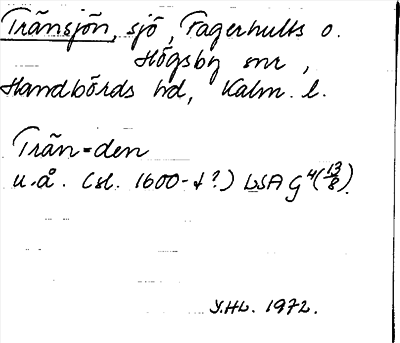 Tränsjön, sjö, Fagerhults o.
Högsby snr,
Handbörds hd, Kalm. l.
Trän=den
u.å. (sl. 1600-t?) LSA G4(13/8).
Y.HL. 1972.